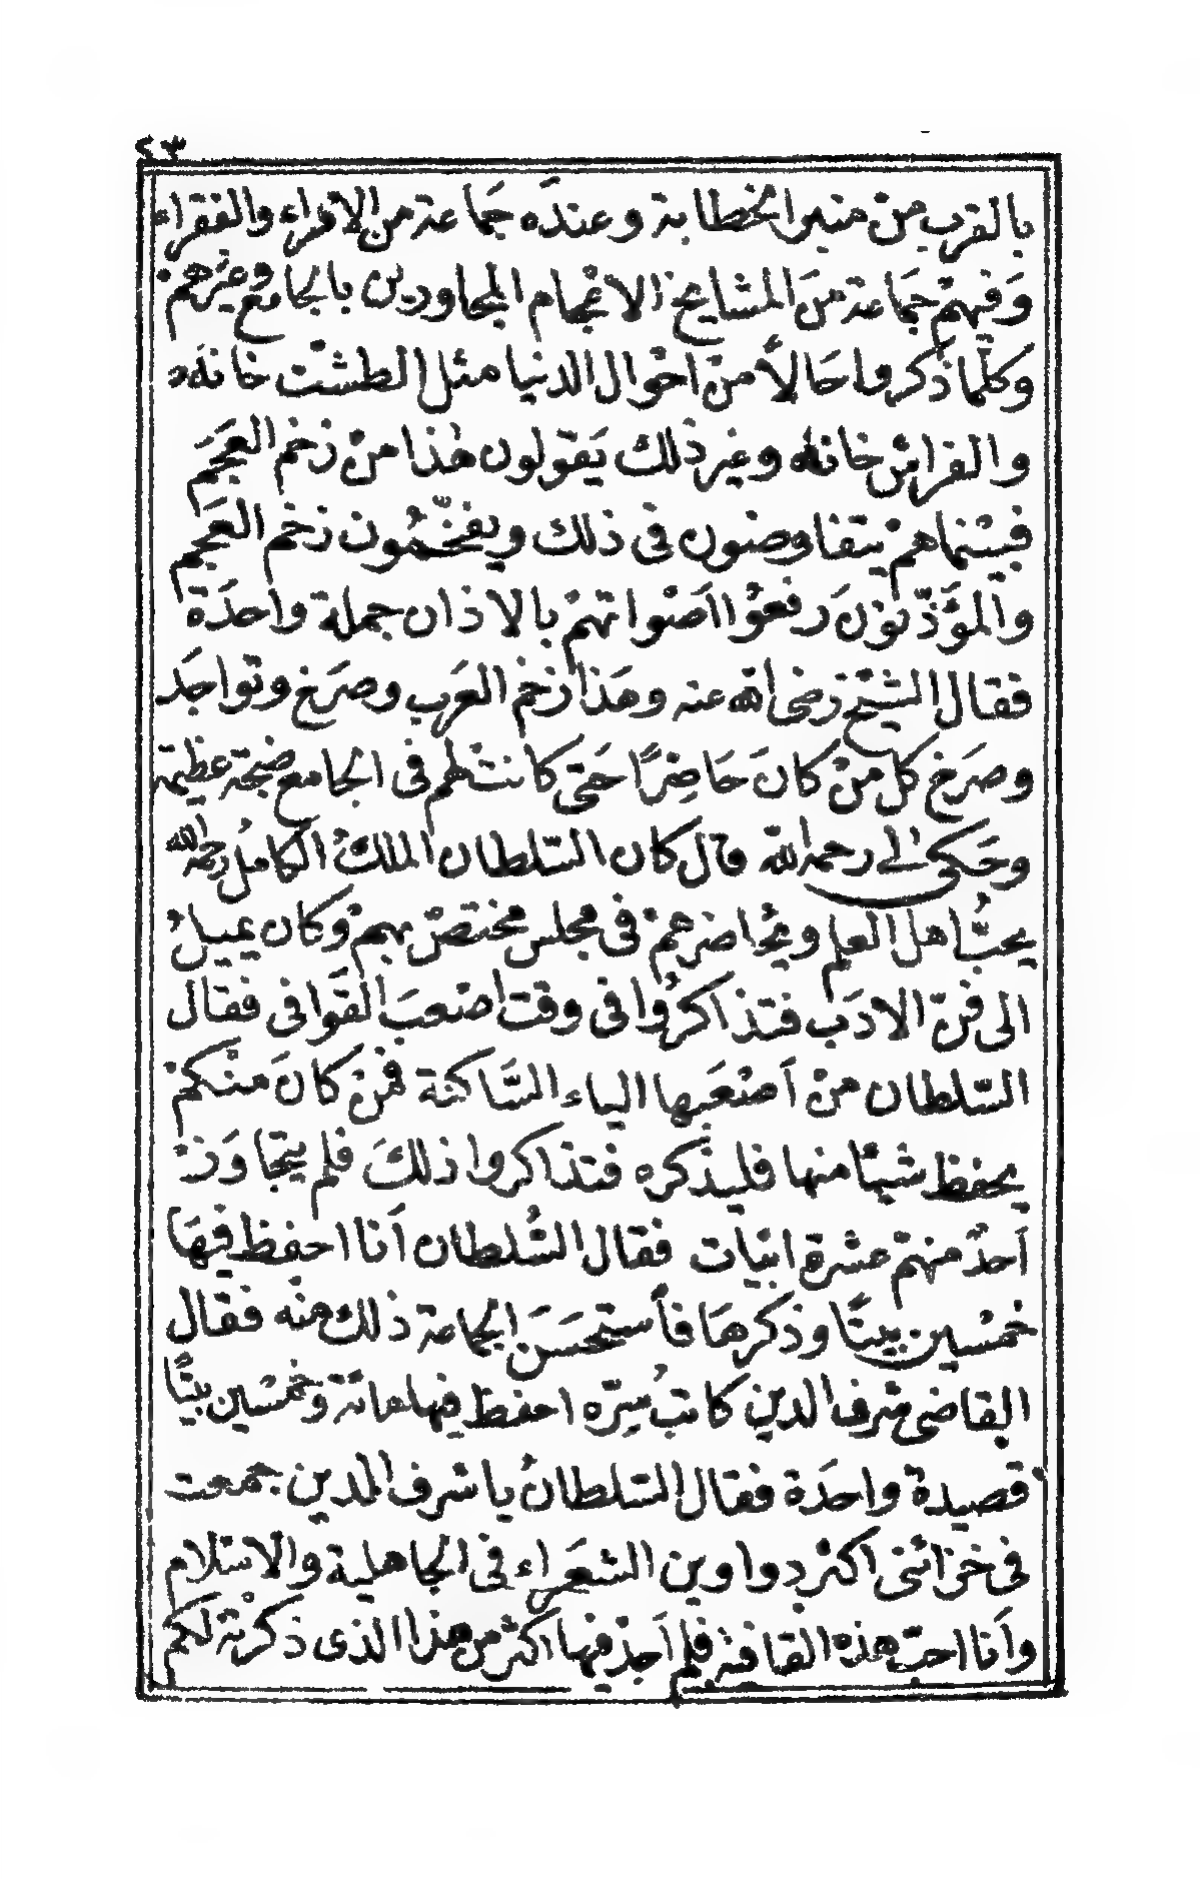 ٢٣
بالقرب من منبر الخطابة وعنده جماعة من الامراء والفقراء
وفيهم جماعة من المشايخ الاعجام المجاورين بالجامع وغيرهم
وكلّما ذكروا حالاً من احوال الدنيا مثل الطشت خانه
والفراش خانه وغير ذلك يقولون هذا من زخم العجم
فبينما هم يتفاوضون فى ذلك ويفخّمون زخم العجم
والمؤذّنون رفعوا اصواتهم بالاذان جملة واحدة
فقال الشيخ رضى الله عنه وهذا زخم العرب وصرخ وتواجد
وصرخ كل من كان حاضرًا حتى كانت لهم فى الجامع ضجة عظيمة
وحكى لى رحمه الله قال كان السّلطان الملك الكامل رحمه الله
يحبُّ اهل العلم ويحاضرهم فى مجلس مختصّ بهم وكان يميلُ
الى فنّ الادب فتذاكروا فى وقت اصعب القوافى فقال
السّلطان من اصعبها الياء السّاكنة فمن كان منكم
يحفظ شيئًا منها فليذكره فتذاكروا ذلك فلم يتجاوز
احدٌ منهم عشرة ابيات فقال السُّلطان أنا احفظ فيها
خمسين بيتًا وذكرها فأستحسن الجماعة ذلك منه فقال
القاضى شرف الدين كاتبُ سِرّه احفظ فيها مائة وخمسين بيتًا
قصيدة واحدة فقال السّلطانُ يا شرف الدين جمعت
فى خزائنى اكثر دواوين الشعراء فى الجاهلية والاسلام
وأنا احبّ هذه القافية فلم أجد فيها اكثر من هذا الذى ذكرته لكم